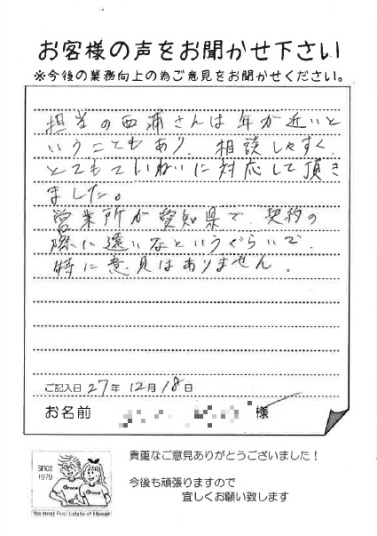 お客様の声をお聞かせ下さい
※今後の業務向上の為ご意見をお聞かせください。
担当の西浦さんは年が近いと
いうこともあり、相談しやすく、
とてもていねいに対応して頂き
ました。
営業所が愛知県で、契約の
際に遠いなというぐらいで、
特に意見はありません。
ご記入日 27年 12月 18日
お名前 様
SINCE
1979
Grace
Grace
貴重なご意見ありがとうございました！
今後も頑張りますので
宜しくお願い致します